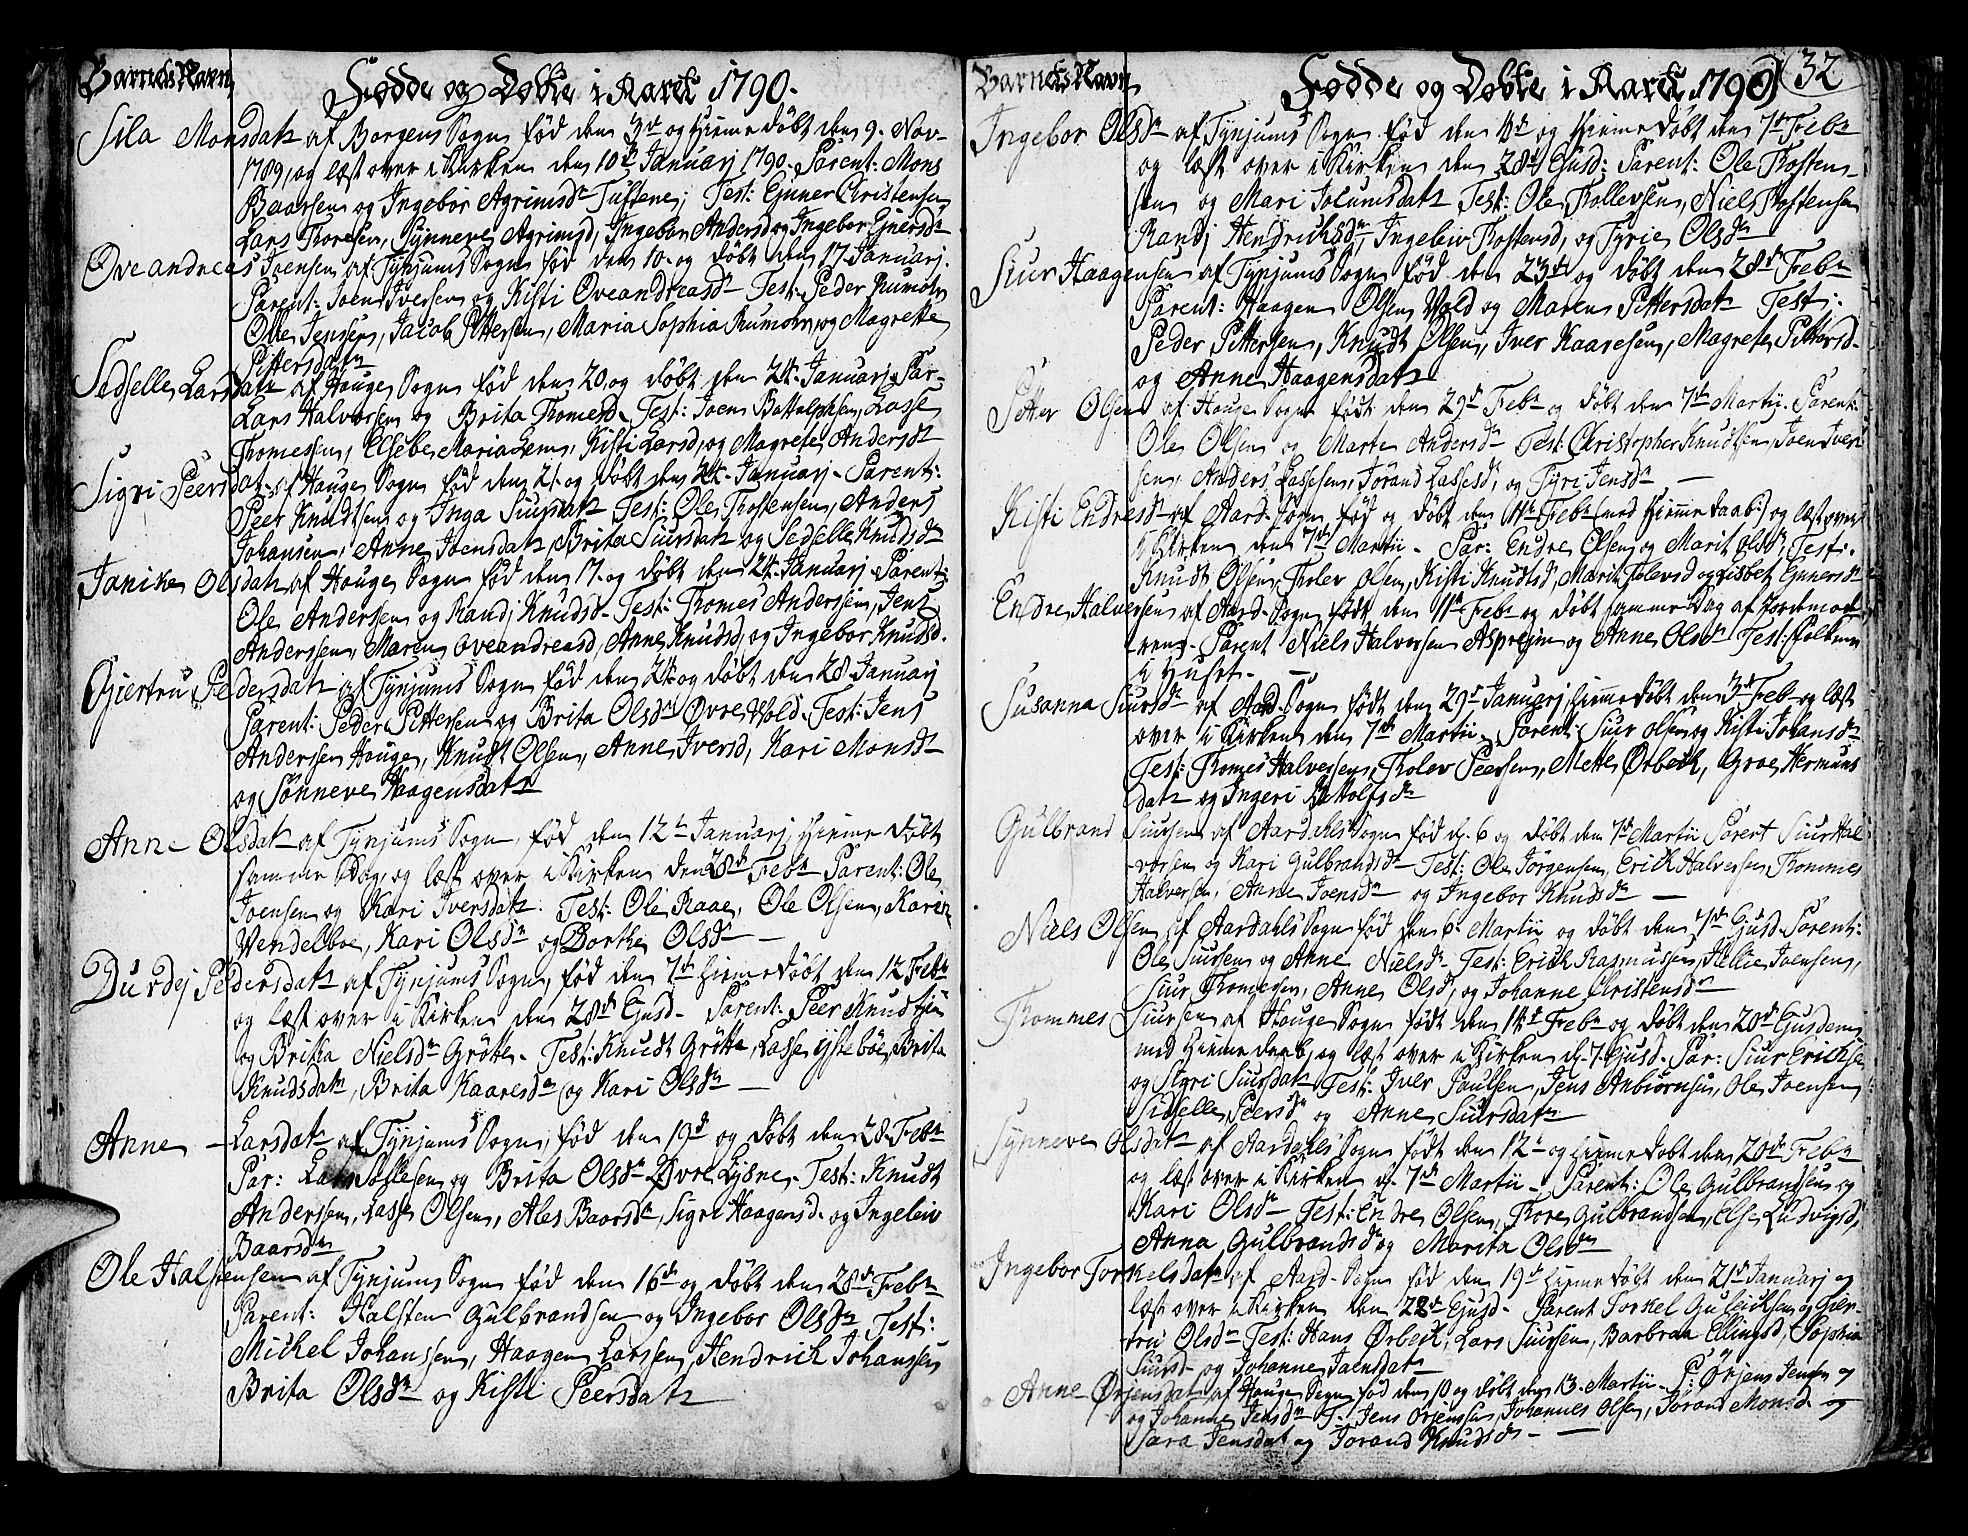 Barnets Navn
Fødde og Døbte i Aaret 1790.
Sila Monsdatr af Borgens Sogn fød den 3die og Hieme døbt den 9. Nov-
1789, og læst over i Kirken den 10de Januarj 1790. Parent: Mons
Baarsen og Ingebor Agrimsdr Tuftene; Test: Ejnner Christensen
Lars Thoresen, Synneve Agrimsd, Ingebor Andersd og Ingebor Ejnersdr
Oveandreas Joensen af Tynjums Sogn fød den 10. og døbt den 17. Januarj.
Parent: Joen Iversen og Kisti Oveandreasdr Test: Peder Rumohr
Olle Jensen, Jacob Pittersen, Maria Sophia Rumohr, og Magrette
Pittersdatr
Sedselle Larsdatr af Houge Sogn fød den 20. og døbt den 24. Januarj. Par-
Lars Halversen og Brita Thomesd. Test: Joen Bottolphsen, Lasse
Thomessen, Elsebe Maria Lem, Kisti Larsd, og Magrete Andersdr
Sigri Peersdat. af Houge Sogn fød den 21. og døbt den 24. Januarj. Parent:
Peer Knudtsen og Inga Siursdatr Test: Ole Thostensen, Anders
Johansen, Anne Joensdatr, Brita Siursdatr og Sedselle Knudsdr
Janike Olsdatr af Houge Sogn fød den 17. og døbt den 24. Januarj. Parent:
Ole Andersen og Randj Knudsd. Test: Thomes Anderssen, Jens
Anderssen, Maren Oveandreasd, Anne Knudsd, og Ingebor Knudsd.
Giertru Pedersdatr af Tynjums Sogn fød den 24. og døbt den 28. Januarj
Parent: Peder Pittersen og Brita Olsdr Øvre Vold. Test: Jens
Andersen Houge, Knudt Olsen, Anne Iversd, Kari Monsdr
og Sønneve Haagensdatr
Anne Olsdatr af Tynjums Sogn, fød den 12te Januarj, Hieme døbt
samme Dag, og læst over i Kirken den 28de Febr. Parent: Ole
Joensen og Kari Iversdatr. Test: Ole Raae, Ole Olsen, Karen
Vendelboe, Kari Olsdr og Borthe Olsdr
Durdej Pedersdatr af Tynjums Sogn, fød den 7de Hieme døbt den 12 Febr
og læst over i Kirken den 28de Ejusd. Parent: Peer Knudtsen
og Britha Nielsdr Grøte. Test: Knudt Grøtte, Lasse Ystebøe, Brita
Knudsdatr, Brita Kaaresdr og Kari Olsdr
Anne Larsdatr af Tynjums Sogn, fød den 19de og døbt den 28. Febr
Par: Lars Sollesen og Brita Olsdr Øvre Lysne. Test: Knudt
Anderssen, Lasse Olsen, Ales Baarsdr, Sigri Haagensd. og Ingeleiv
Baarsdr
Ole Halstensen af Tynjums Sogn fød den 16de og døbt den 28de Febr
Parent: Halsten Gulbrandsen og Ingebor Olsdr Test:
Michel Johanssen, Haagen Larssen, Hendrich Johanssen
Brita Olsdr og Kisti Peersdatr
Barnets Navn
Fødde og Døbte i Aaret 1790
32
Ingebor Olsdr af Tynjums Sogn fød den 4de og Hieme døbt den 7de Febr
og læst over i Kirken den 28de Ejusd: Parent: Ole Thosten-
sen og Mari Joiumsdatr Test: Ole Thollevsen, Niels Thostensen
Randj Hendrichsdr, Ingeleiv Thostensd, og Tyrie Olsdr
Siur Haagensen af Tynjums Sogn fød den 23de og døbt den 28de Febr
Parent: Haagen Olsen Vold og Maren Pittersdatr Test:
Peder Pittersen, Knudt Olsen, Iver Kaaresen, Magrete Pittersd.
og Anne Haagensdatr
Petter Olsen af Houge Sogn født den 29de Febr og døbt den 7de Martii. Parent:
Ole Olsen og Marte Andersdr Test: Christopher Knudtsen, Joen Iver-
sen, Anders Lassesen, Jorand Lassesd, og Tyri Jensdr
Kisti Endresdr af Aard. Sogn fød og døbt den 11te Febr (med Hieme daab) og læst over
i Kirken den 7de Martii. Par: Endre Olsen og Marit Olsdr, Test:
Knudt Olsen, Tholev Olsen, Kisti Knudtsd, Marit Tolevsd og Lisbet Ejnersdr
Endre Halversen af Aard. Sogn født den 11te Febr og døbt samme Dag af Jordemod-
eren. Parent Niels Halversen Asprejm og Anne Olsdr Test: Folkene
i Huset.
Susanna Siursdr af Aard. Sogn født den 29de Januarj, Hieme døbt den 3de Feb og læst
over i Kirken den 7de Martii. Parent: Siur Olsen og Kisti Johansdr
Test: Thomes Halversen, Tholev Peersen, Mette Ørbech, Groe Hermuns
datr og Ingeri Bottolfsdr
Gulbrand Siursen af Aardahls Sogn fød d. 6 og døbt den 7de Martii Parent Siur Hal-
versen og Kari Gulbrandsdr Test: Ole Jørgensen, Erich Halversen, Thommes
Halversen, Anne Joensdr og Ingebor Knudsdr
Niels Olsen af Aardahls Sogn fød den 6. Martii og døbt den 7de Ejusd. Parent:
Ole Siursen og Anne Nielsdr Test: Erich Rasmussen, Hellie Joensen,
Siur Thomesen, Anne Olsd, og Johanne Christensdr
Thommes Siursen af Houge Sogn født den 14de Febr og døbt den 20de Ejusdem
med Hieme daab, og læst over i Kirken d. 7. Ejusd. Par: Siur Erichse
og Sigri Siursdatr Test: Iver Paulsen, Jens Anbiørnsen, Ole Joensen
Sidselle Peersdr og Anne Siursdatr
Synneve Olsdatr af Aardahls Sogn født den 12te og Hieme døbt den 20de Febr
og læst over i Kirken d. 7de Martii. Parent: Ole Gulbrandsen og
Kari Olsdr Test: Endre Olsen, Thore Gulbrandsen, Else Ludvigsd,
Anna Gulbrandsdr og Marita Olsdr
Ingebor Torkelsdatr af Aard. Sogn fød den 19de Hieme døbt den 21de Januarj og
læst over i Kirken den 22de Ejusd. Parent Torkel Gulichsen og Gier-
tru Olsdr Test: Hans Ørbech, Lars Siursen, Barbraa Ellingsd, Sophia
Siursd. og Johanne Joensdatr
Anne Ørjensdatr af Houge Sogn fød den 10 og døbt den 13. Martii. P: Ørjens Jensen og
og Johanne Jensdr T. Jens Ørjenssen, Johannes Olsen, Jorand Monsd. og
Sara Jensdat og Jorand Knudsdr